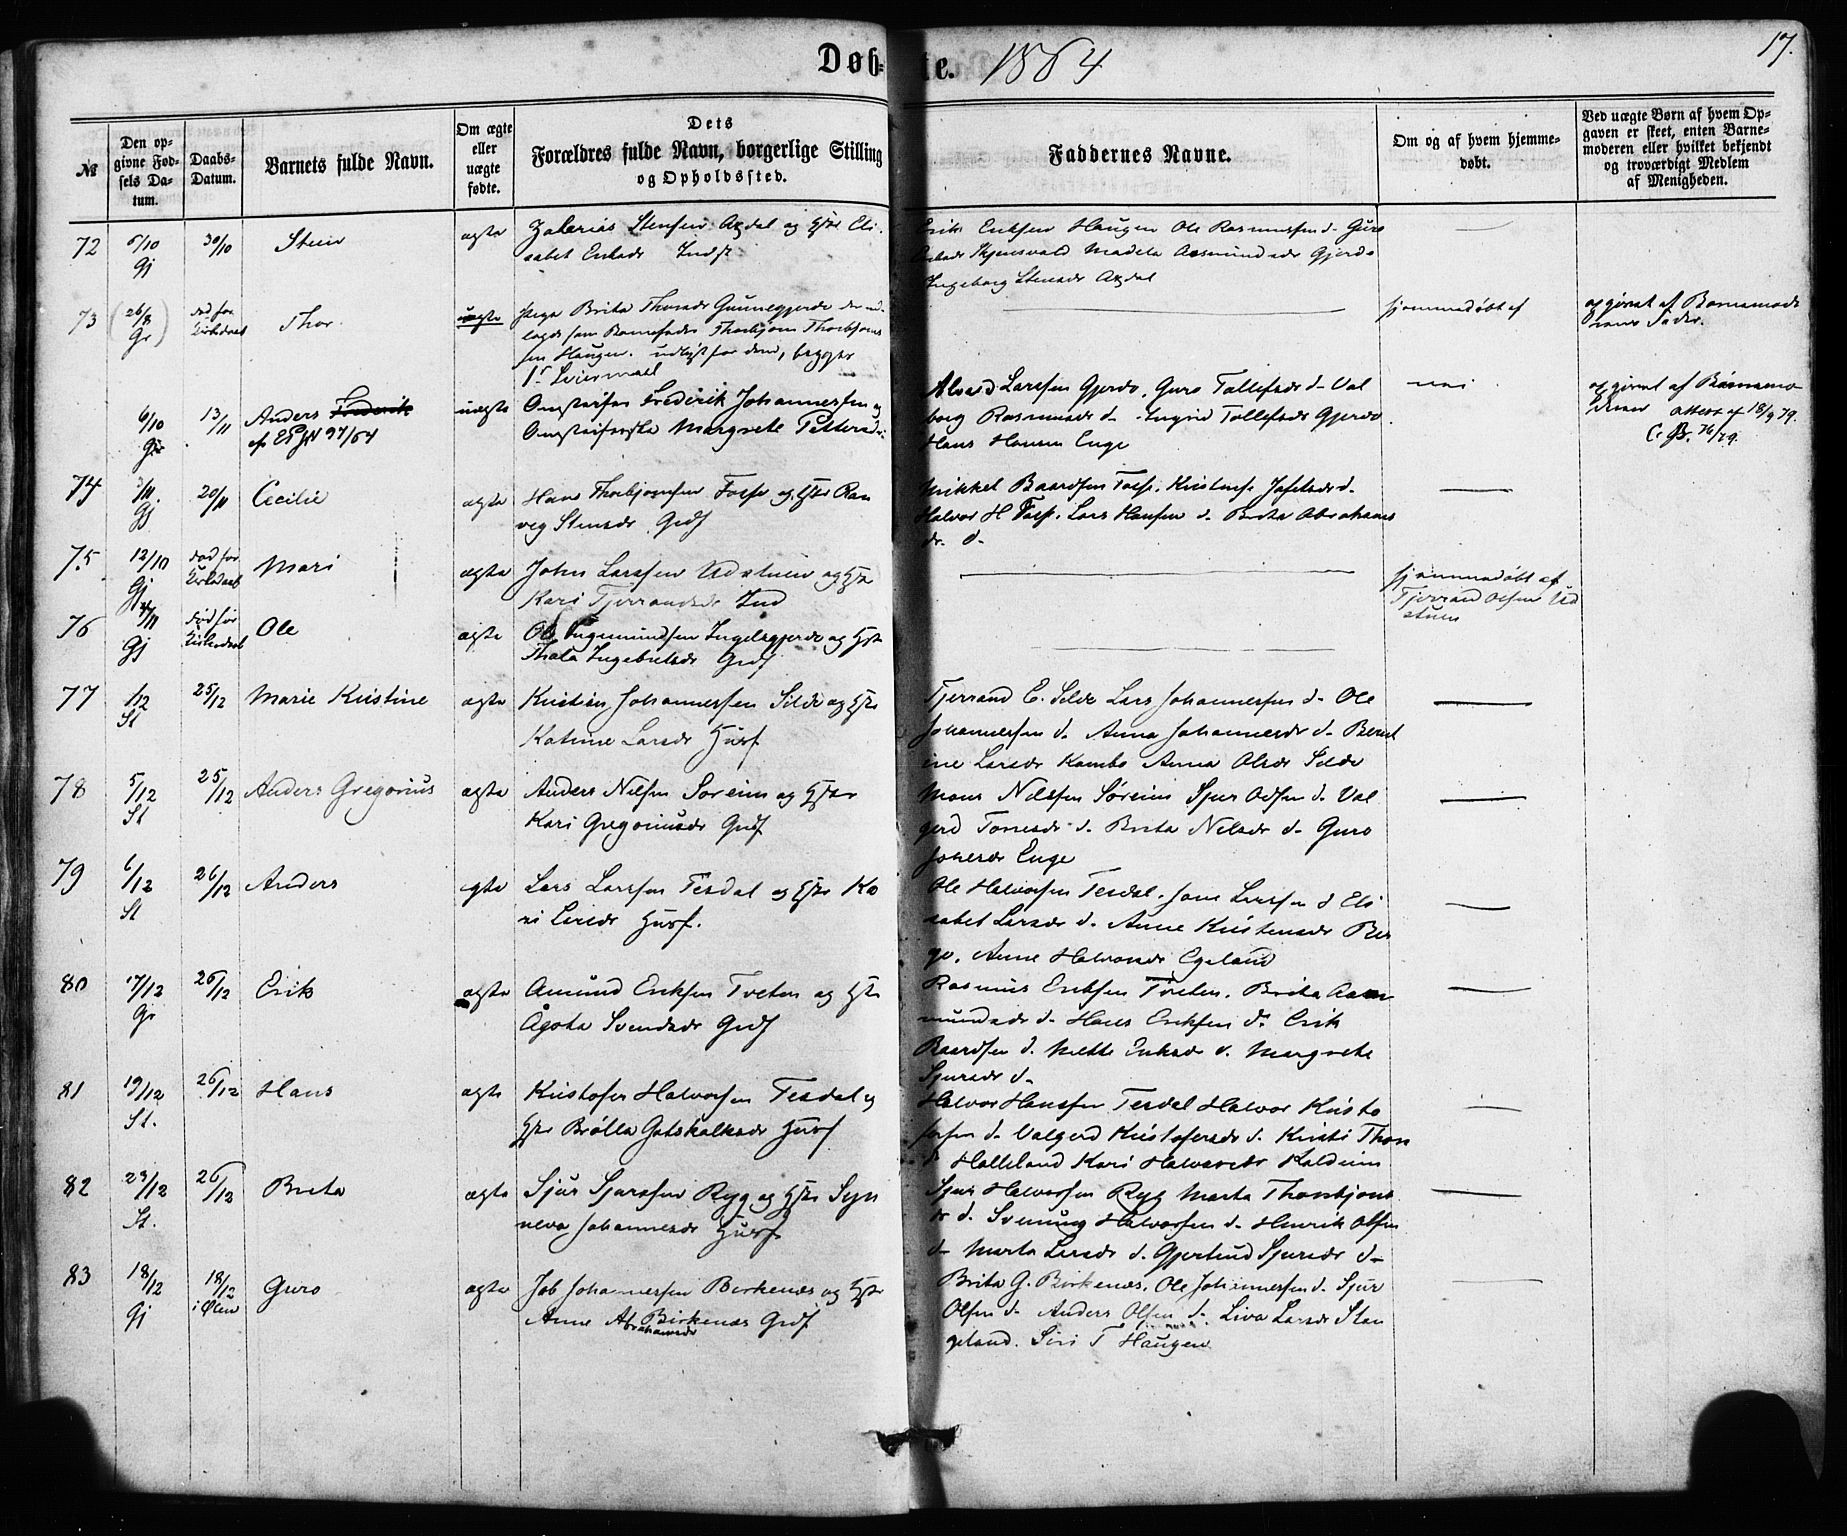 Døbte. 1864
17.
№
Den opgivne Fødsels Datum.
Daabs-Datum.
Barnets fulde Navn.
Om ægte eller uægte fødte.
Dets Forældres fulde Navn, borgerlige Stilling og Opholdssted.
Faddernes Navne.
Om og af hvem hjemmedøbt.
Ved uægte Børn af hvem Opgaven er skeet, enten Barnemoderen eller hvilket bekjendt og troværdigt Medlem af Menigheden.
72 5/10 Gj 30/10 Stein ægte
Zakarias Stensen Axdal og Hstr Eli
sabet Eriksdr Indst
Erik Eriksen Haugen Ole Rasmussen d. Guro
Madela Aasmundsdr Gjerde
Ingeborg Stensdr Axdal
73 (26/8 Gr) død før Kirkedaab Thor uægte
Pige Brita Thorsdr Gunnegjerde
som Barnefader Thorbjørn Thorbjørns
sen Haugen. udlyst for dem, begges
1ste Leiermaal
hjemmedøbt af
opgivet af Barnemode
rens Fader.
6/10 Gr 13/11 Anders Frederik
ef. 97/64
uægte
Omstreifer Frederik Johannessen og
Omstreiferske Margrete Pettersdr
Larssen Gjerde, Guro Tollefsdr d. Val
borg Rasmusdr d. Ingrid Tollefsdr Gjerde
Hans Hansen Enge
nei
opgivet af Barnemo
deren Attest af 18/9 79.
C. B. 76/79.
74 3/11 Gj 20/11 Cecilie ægte
Hans Thorbjørnsen Fosse og Hstr Ran
veig Stensdr Grdf
Mikkel Baardsen Fosse. Josefsdr d.
Halvor H Foss. Lars Hansen d. Brita Abrahams
dr. d.
75 12/10 Gj død før Kirkedaab Mari ægte
John Larssen Udstuen og Hstr
Kari Tjerrandsdr Ind
hjemmedøbt af
Tjerrand Olsen Ud
stuen
76 Gj død før Kirkedaab Ole ægte
Ole Ingemundsen Ingelsgjerde og Hstr
Thala Ingebretsdr Grdf
77 1/12 St 25/12 Marie Kristine ægte
Kristian Johannessen Silde og Hstr
Katrine Larsdr Husf
Tjerrand E. Silde Lars Johannessen d. Ole
Johannessen d. Anna Johannesdr d. Bernt
ine Larsdr Kambe Anna Olsdr Silde
78 5/12 St 25/12 Anders Gregorius ægte
Anders Nilsen Søreim og Hstr
Kari Gregoriusdr Grdf
Mons Nilssen Søreim Sjur Olsen d. Val
gerd Torresdr d. Brita Nilsdr d. Guro
Johnsdr Enge
79 6/12 St 26/12 Anders ægte
Lars Larssen Tesdal og Hstr Ka
ri Larsdr Husf.
Ole Halvorsen Tesdal. Jens Larssen d Eli
sabet Larsdr d. Anne Kristensdr Ber
ge. Anne Halvorsdr Egeland
80 17/12 Gr 26/12 Erik ægte
Amund Eriksen Tveten og Hstr
Ågota Svendsdr Grdf
Rasmus Eriksen Tveten. Brita Aa
mundsdr d. Hans Eriksen d. Erik
Baardsen d. Mette Eriksdr d. Margrete
Sjursdr d.
81 19/12 St. 26/12 Hans ægte
Kristofer Halvorsen Tesdal og
Hstr Brølla Gotskalksdr Husf
Halvor Hansen Tesdal Halvor Kristo
fersen d. Valgerd Kristofersdr d. Kristi Thors
d Halleland Kari Halvorsdr Kaldeim
82 23/12 St. 26/12 Brita ægte
Sjur Sjurssen Ryg og Hstr Syn
neva Johannesdr Husf
Sjur Halvorsen Ryg Marta Thorbjørns
dr d. Svenung Halvorsen d. Henrik Olsen
d. Marta Larsdr d. Gjertrud Sjursdr d.
83 18/12 Gj 18/12 i Ølen Guro ægte
Job Johannessen Berkenæs og Hstr
Anne Abrahamsdr Birkenæs Grdf
Brita G. Birkenæs. Ole Johannessen d. Sjur
Olsen d. Anders Olsen d. Liva Larsdr Stan
geland. Siri T Haugen